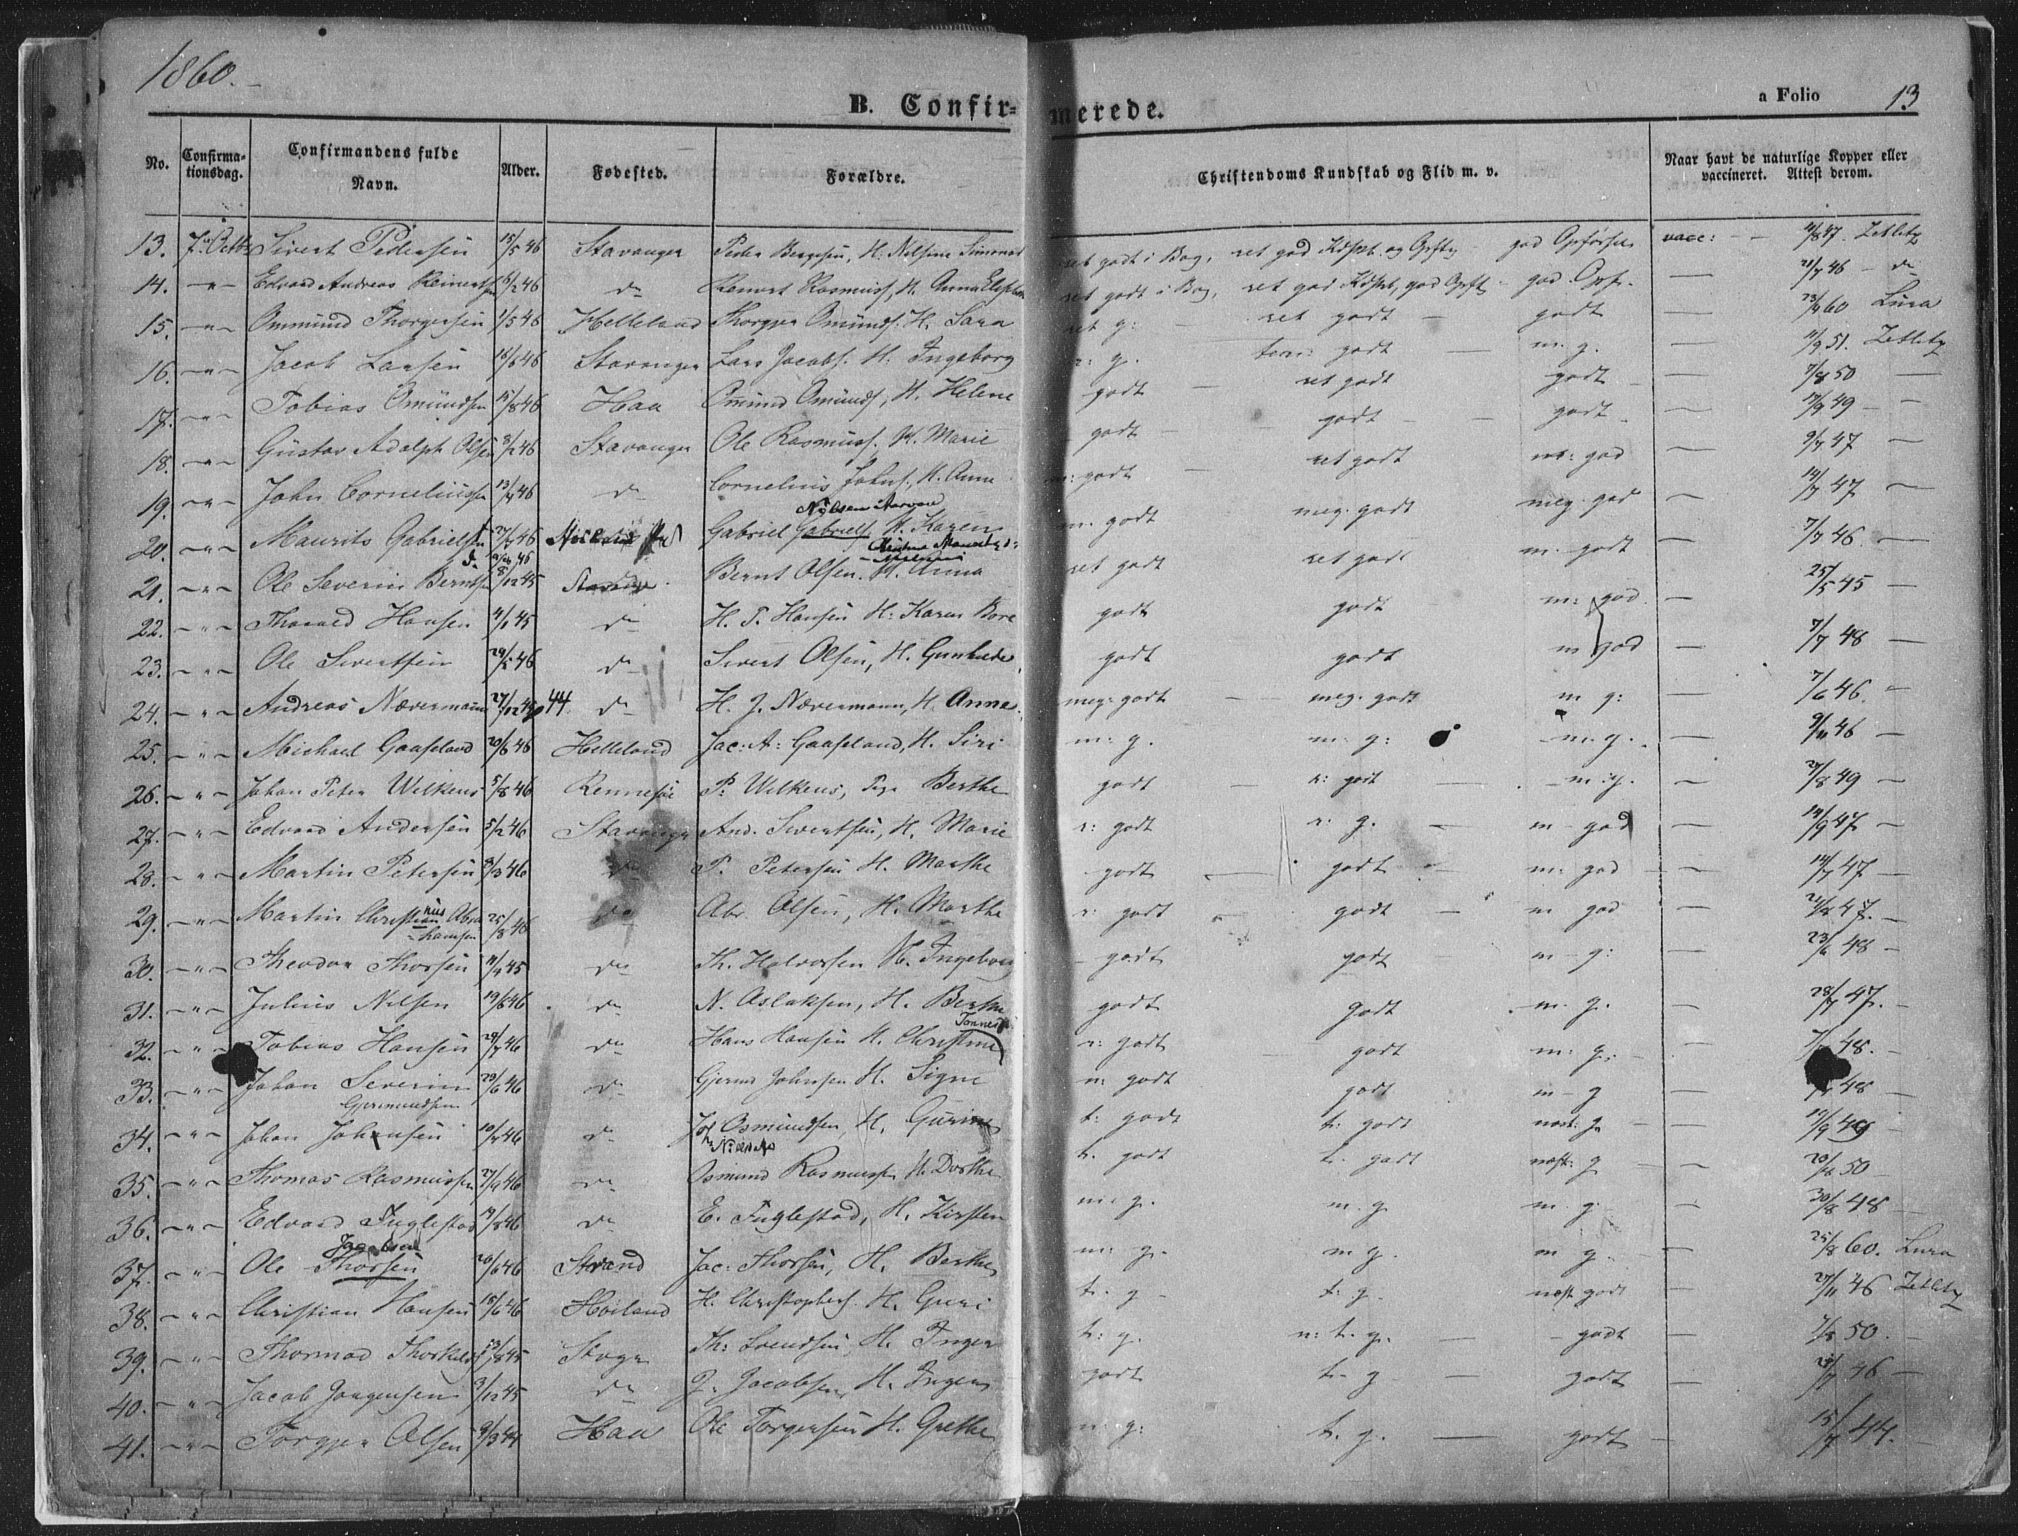 1860.
B. Confirmerede.
a Folio 13
No. Confirmationsdag. Confirmandens fulde Navn. Alder. Fødested. Forældre. Christendoms Kundskab og Flid m. v. Naar havt de naturlige Kopper eller vaccineret. Attest derom.
13. Sivert Pedersen 15/5 46 Stavanger Peder Bergesen, H. Nilsine ret godt i Bog, ret god god Opførsel vacc: 4/8 47. Zetlitz
14. -"- Edvard Andreas Reinertsen 16/2 46 do Reinert Rasmuss, H. Anna ret godt i Bog, ret god god Opf. — 21/7 46 - do
15. -"- Ommund Thorgersen 1/5 46 Helleland Thorger Omunds. H. Sara ret g: — ret godt — godt — 23/9 60 Lura
16. -"- Jacob Larsen 16/6 46 Stavanger Lars Jacobs. H. Ingeborg r: g. godt — m: g. — 11/9 51. Zetlitz
17. -"- Tobias Omundsen 15/8 46 Haa Omund Omunds, H. Helene godt — ret godt godt — 7/8 50 —
18. -"- Gustav Adolph Olsen 3/2 46 Stavanger Ole Rasmuss. H. Marie godt — godt — godt. — 17/9 49 —
19. -"- John Corneliussen 13/4 46 do Cornelius Johns, H. Anna m: godt ret godt m: god — 9/7 47 —
20. -"- Maurits Gabrielsen 46 Gabriel Gabriels H. Karen m. godt meg. godt meg. god — 14/7 47 —
Nilsen Aarvou
21. -"- Ole Severin Berntsen 8/12 45 Stavanger Bernt Olsen. H. Anna ret godt ret godt m. godt — 7/7 46 —
22. -"- Thorvald Hansen 4/1 45 do H. T. Hansen H: Karen Bore godt godt m: god — 25/5 45
23. -"- Ole Sivertsen 29/5 46 do Sivert Olsen, H. Gunhilde godt godt m god — 7/7 48 —
24. -"- Andreas Nævermann 27/12 44. do H. J. Nævermann, H. Anne meg. godt — meg. godt m g: — 7/6 46. —
25. -"- Michael Gaaseland 20/6 46 Helleland Jac: A: Gaaseland, H. Siri m: g. m: g: m. g. — 9/11 46 —
26. -"- Johan Peter Wilkens 5/8 46 Rennesøe P. Wilkens, Berthe godt — r: godt — m: g. — 29/8 49 —
27. -"- Edvard Andersen 5/2 46 Stavanger And. Sivertsen, H. Marie r: godt r: g. — m - god — 14/9 47 —
28. -"- Martin Petersen 8/3 46 do P. Petersen H. Marthe godt — godt — m: god — 14/7 47 —
29. -"- Martin Christiannus Abrahamsen 25/8 46 do Abr. Olsen, H. Marthe r: godt — godt — m god — 21/8 47. —
30. -"- Theodor Thorsen 11/9 45 do Th. Halvorsen H. Ingeborg godt godt m - g: — 23/6 48 —
31. -"- Julius Nilsen 19/6 46 do N. Aslaksen, H. Berthe godt godt m. g. — 28/7 47. —
32. -"- Tobias Hansen 29/7 46 do Hans Hansen H. Christine r: godt godt m: g. — 48. —
Tonnes
33. -"- Johan Severin Gjermundsen 29/6 46 do Gjermd Johnsen H. Signe m: godt godt m - g — 48 —
34. -"- Johan Johnsen 10/7 46 do Osmundsen, H. Gurine t: godt t: godt næst: g. — 17/9 49 —
35. -"- Thomas Rasmussen 27/9 46 do Osmund Rasmussen H. Dorthe t. godt t. godt næst: g — 20/11 50 —
36. -"- Edvard Fuglestad 19/8 46 do E. Fuglestad, H. Kirsten m: g. m. g. m. g: — 30/8 48 —
37. -"- Ole Thorsen 20/6 46 Strand Jac: Thorsen, H. Berthe m: g. m g. m g. — 25/8 60. Lura
Jacobsen
38. -"- Christian Hansen 15/6 46 Høiland H. Christophers. H. Guri t. g — t: g. næst godt — 27/11 46 Zetlitz
39. -"- Thormod Thorkelds 13/8 45 Th: Svendsen, H. Inger t: g. n: t. g. — godt — 7/8 50. —
40. -"- Jacob Jørgensen 3/12 45 do J. Jacobsen, H. Inger godt t. g — godt — 46 —
41. -"- Torger Olsen 9/3 44 Haa Ole Torgersen H. Grethe m. g: t. g. — godt — 15/7 44. —